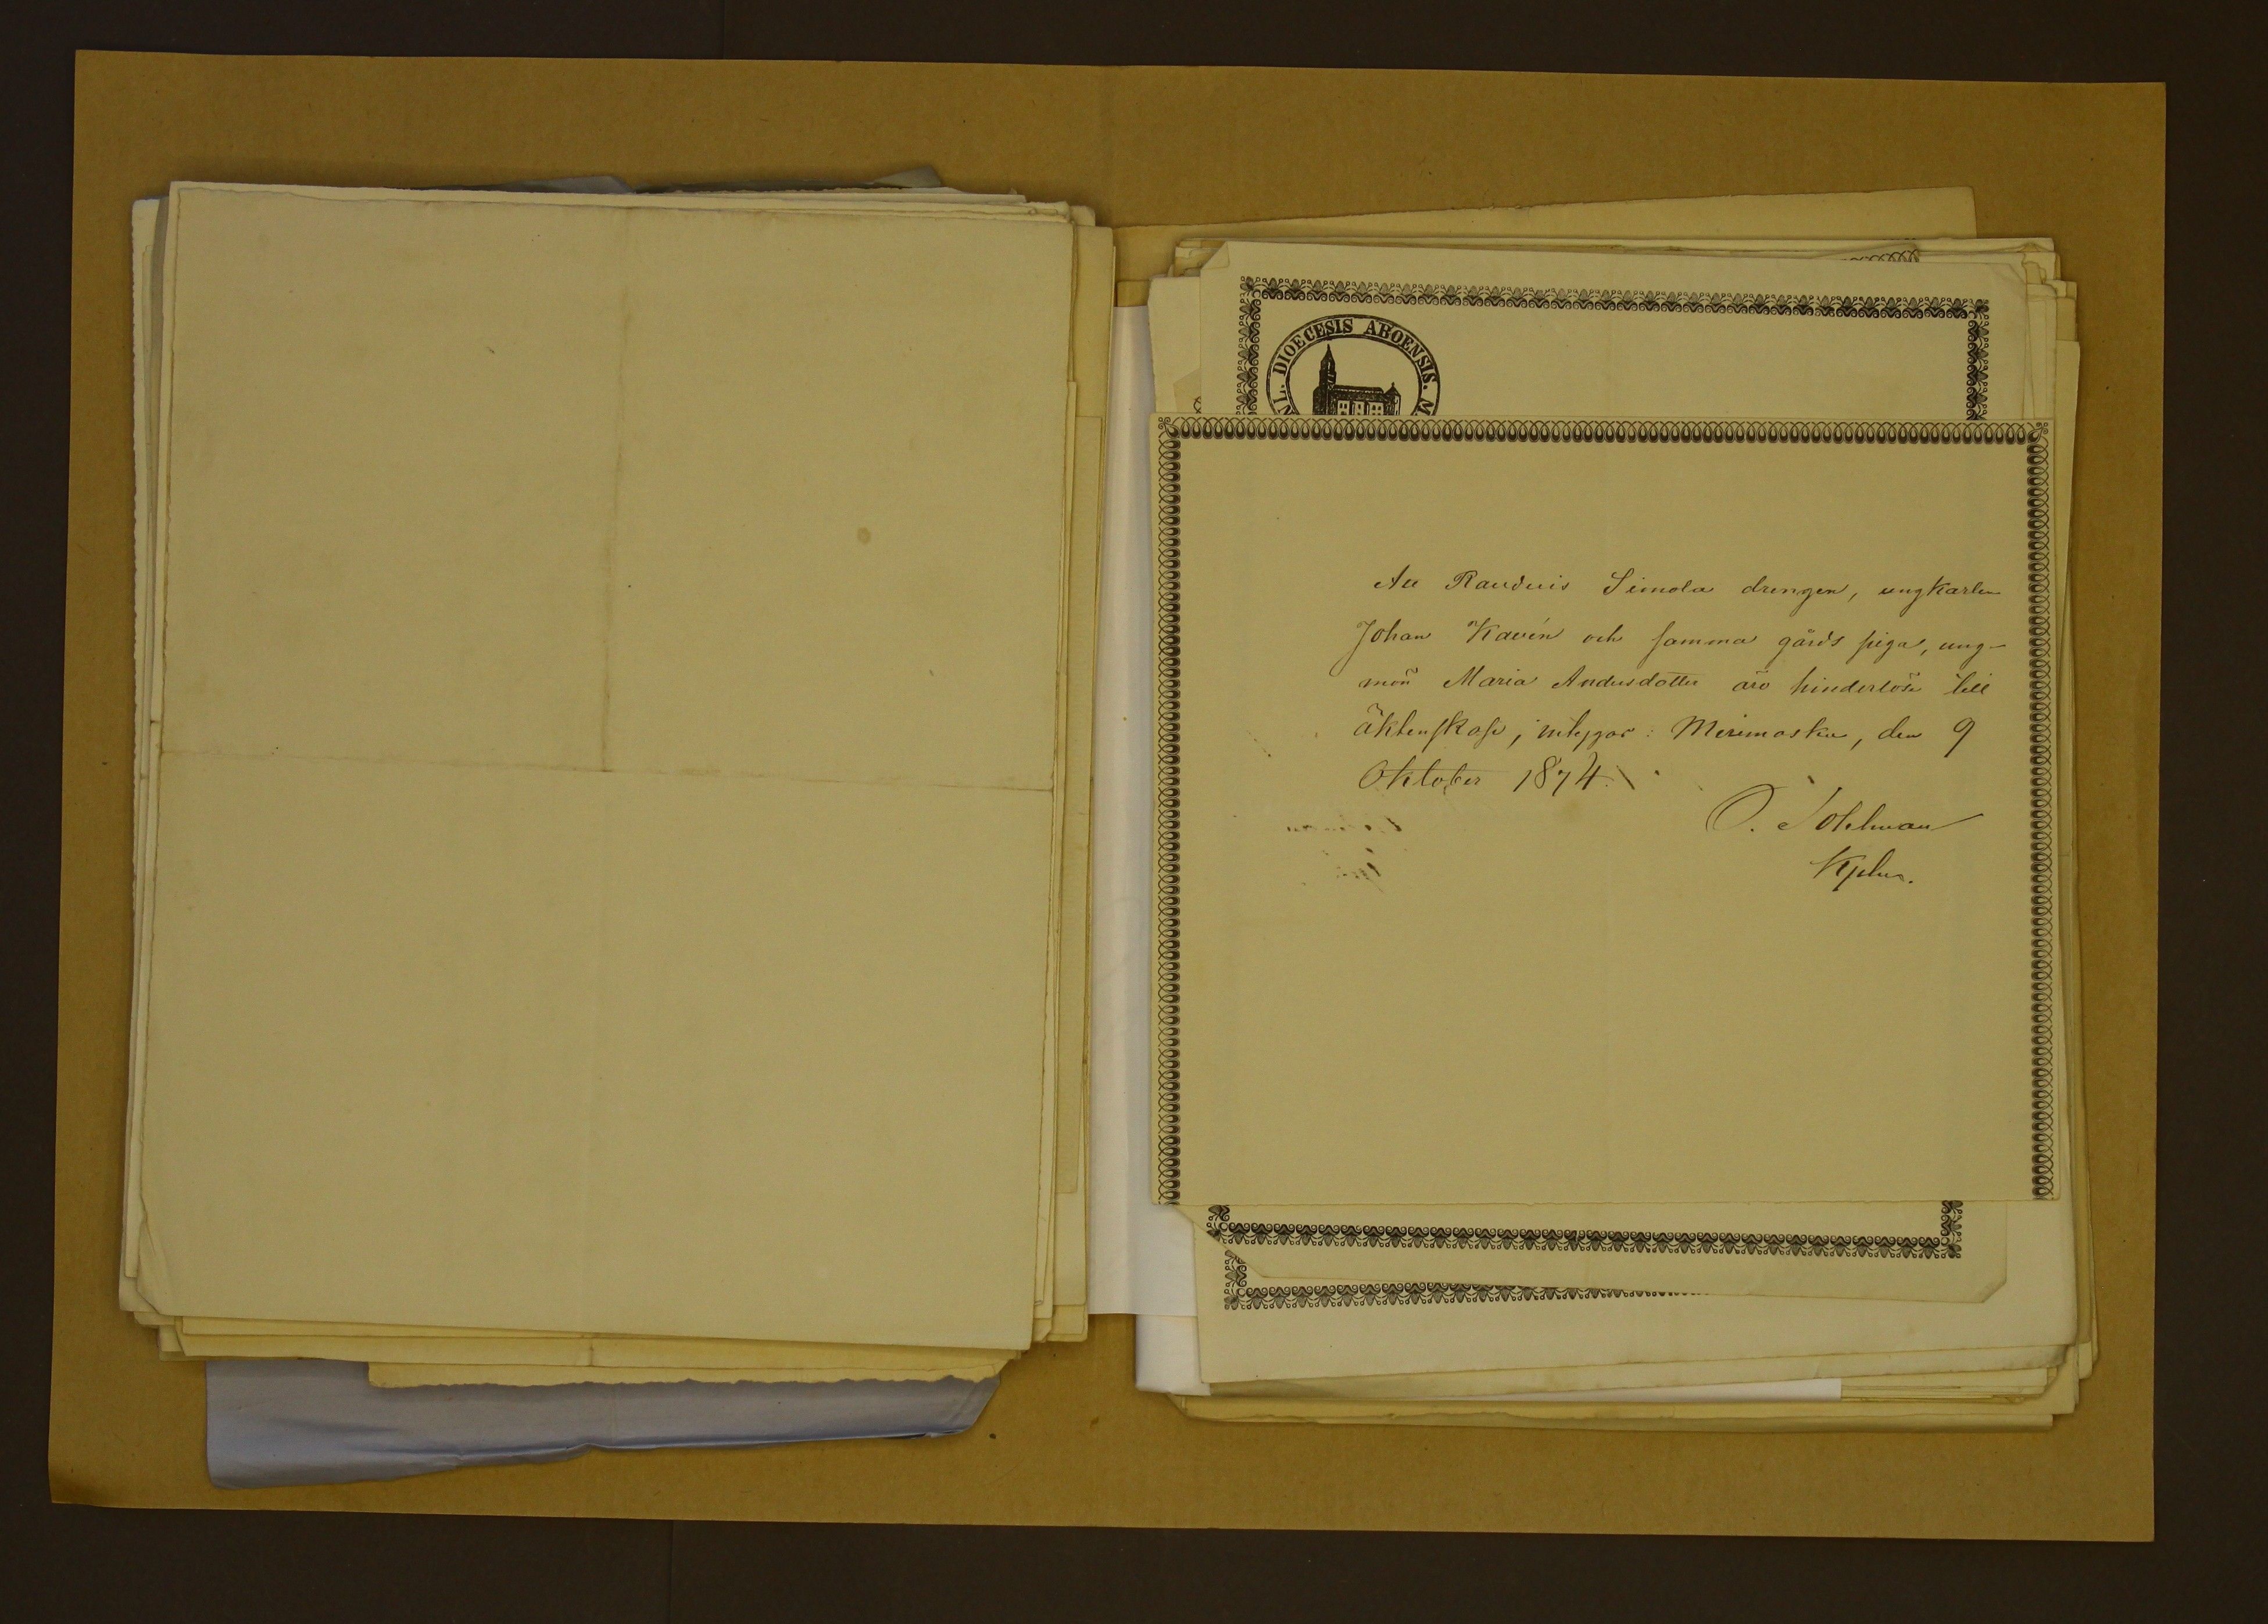 NL. DIOECESIS ABOENSIS. M
Att Rauduis Simola drengen, ungkarlen
Johan Kavén och samma gårds piga, ung-
mön Maria Andersdotter äro hinderlöse till
äktenskap, intygar: Merimasku, den 9
Oktober 1874.
O. Sohlman
Kplan.